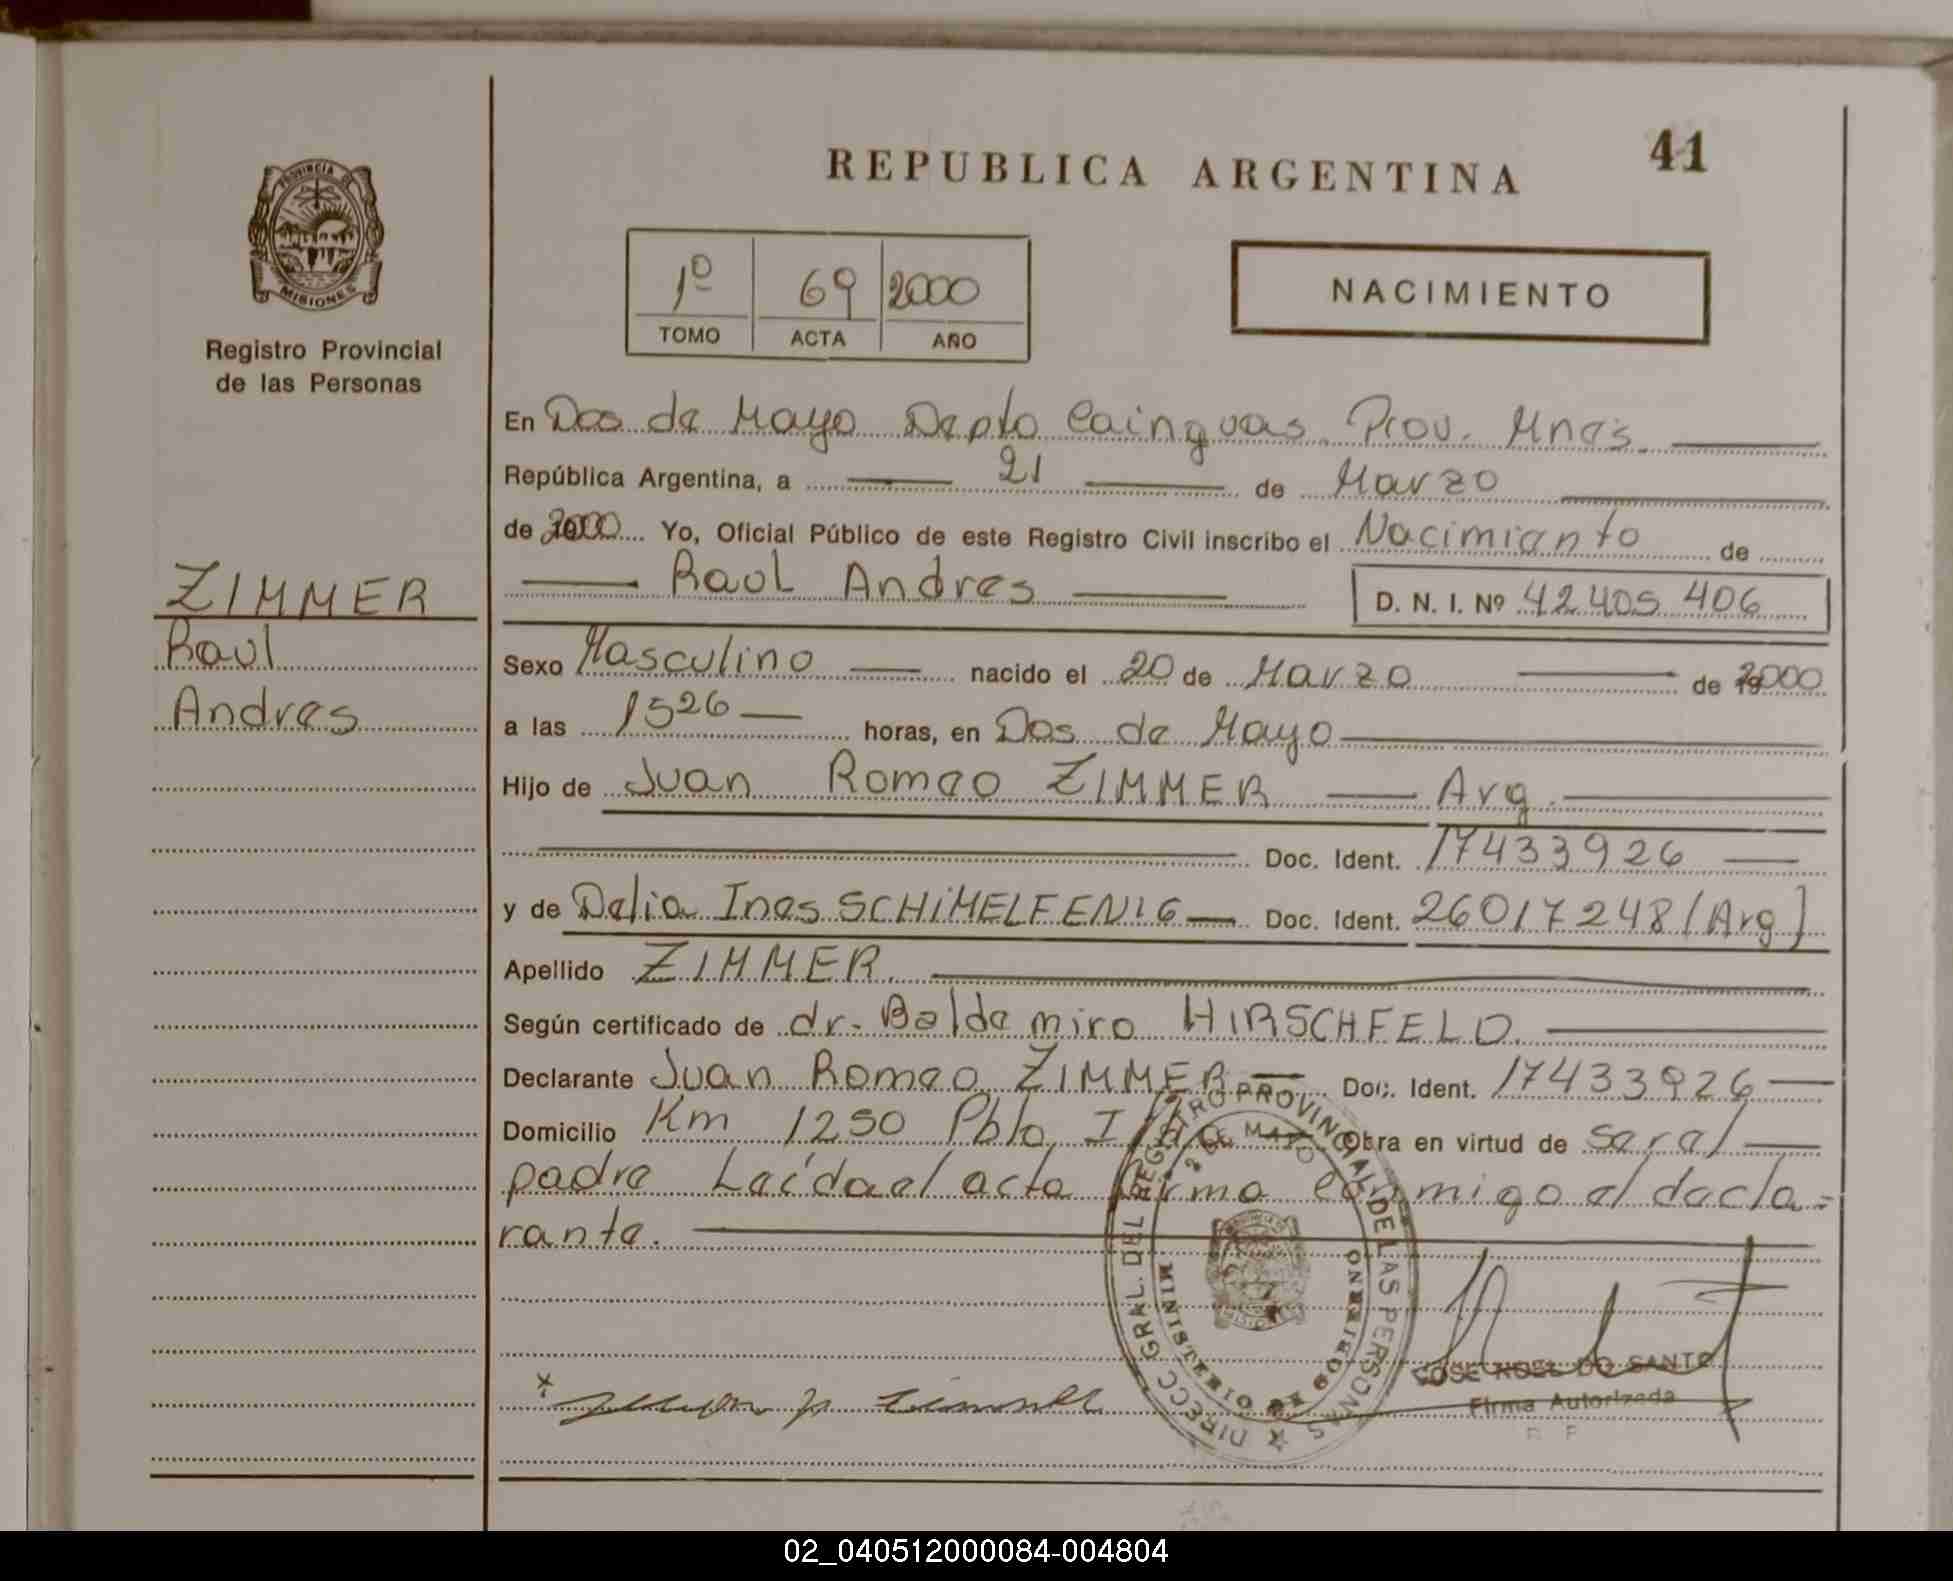 41
REPUBLICA ARGENTINA
PROVINCIA DE
MISIONES
Registro Provincial
de las Personas
1º 69 2000
TOMO ACTA AÑO
NACIMIENTO
En Dos de Mayo Depto Cainguas Prov. Mnes.
República Argentina, a 21 de Marzo
de 2000 Yo, Oficial Público de este Registro Civil inscribo el Nacimiento de
Raul Andres D. N. I. Nº 42405 406
ZIMMER
Raul
Andres
Sexo Masculino nacido el 20 de Marzo de 2000
a las 1526 horas, en Dos de Mayo
Hijo de Juan Romeo ZIMMER Arg.
Doc. Ident. 17433926
y de Delia Ines SCHiMELFENIG Doc. Ident. 26017248 (Arg)
Apellido ZIMMER
Según certificado de dr. Baldemiro HIRSCHFELD
Declarante Juan Romeo ZIMMER Doc. Ident. 17433926
Domicilio Km 1250 Pblo I Obra en virtud de ser al
padre Leída el acta firma conmigo el decla=
rante.
DIRECC. GRAL. DEL REGISTRO PROVINCIAL DE LAS PERSONAS
2 DE MAYO
MINISTERIO GOBIERNO
MISIONES
JOSE NOEL DO SANTO
Firma Autorizada
02_040512000084-004804